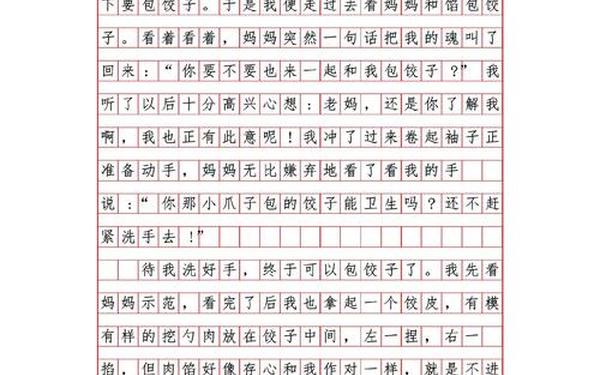 下要包饺子。于是我便走过去看妈妈和馅包饺
子。看着看着，妈妈突然一句话把我的魂叫了
回来：“你要不要也来一起和我包饺子？”我
听了以后十分高兴心想：老妈，还是你了解我
啊，我也正有此意呢！我冲了过来卷起袖子正
准备动手，妈妈无比嫌弃地看了看我的手
说：“你那小爪子包的饺子能卫生吗？还不赶
紧洗手去！”
待我洗好手，终于可以包饺子了。我先看
妈妈示范，看完了后我也拿起一个饺皮，有模
有样的挖勺肉放在饺子中间，左一捏，右一
掐，但肉馅好像存心和我作对一样，就是不进